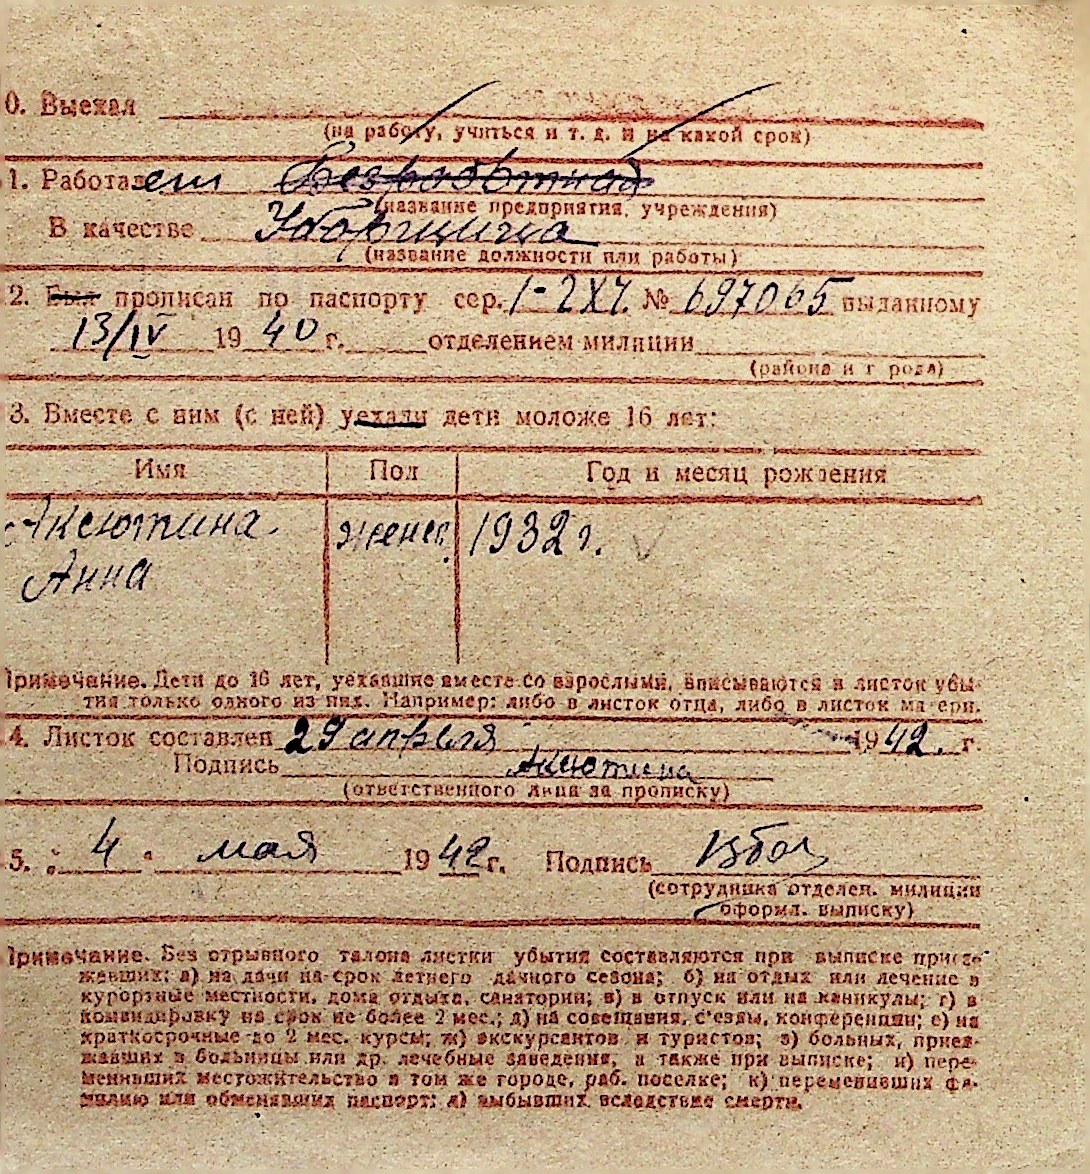 0. Выехал
(на работу, учиться и т. д. и на какой срок)
1. Работает Безработная
(название предприятия, учреждения)
В качестве Уборщица
(название должности или работы)
2. Был прописан по паспорту сер. № 697065 выданному
13/IV 1940 г. отделением милиции
(района и города)
3. Вместе с ним (с ней) уехали дети моложе 16 лет:
Имя Пол Год и месяц рождения
Аксютина женск. 1932 г.
Анна
Примечание. Дети до 16 лет, уехавшие вместе со взрослыми, вписываются в листок убы-
тия только одного из них. Например: либо в листок отца, либо в листок матери.
4. Листок составлен 29 апреля 1942. г.
Подпись Аксютина
(ответственного лица за прописку)
5. „ 4 “ мая 1942 г. Подпись
(сотрудника отделен. милиции
оформл. выписку)
Примечание. Без отрывного талона листки убытия составляются при выписке приез-
жавших: а) на дачи на срок летнего дачного сезона; б) на отдых или лечение в
курортные местности, дома отдыха, санатории; в) в отпуск или на каникулы; г) в
командировку на срок не более 2 мес.; д) на совещания, с'езды, конференции; е) на
краткосрочные до 2 мес. курсы; ж) экскурсантов и туристов; з) больных, приез-
жавших в больницы или др. лечебные заведения, а также при выписке; и) пере-
менивших местожительство в том же городе, раб. поселке; к) переменивших фа-
милию или обменявших паспорт; л) выбывших вследствие смерти.